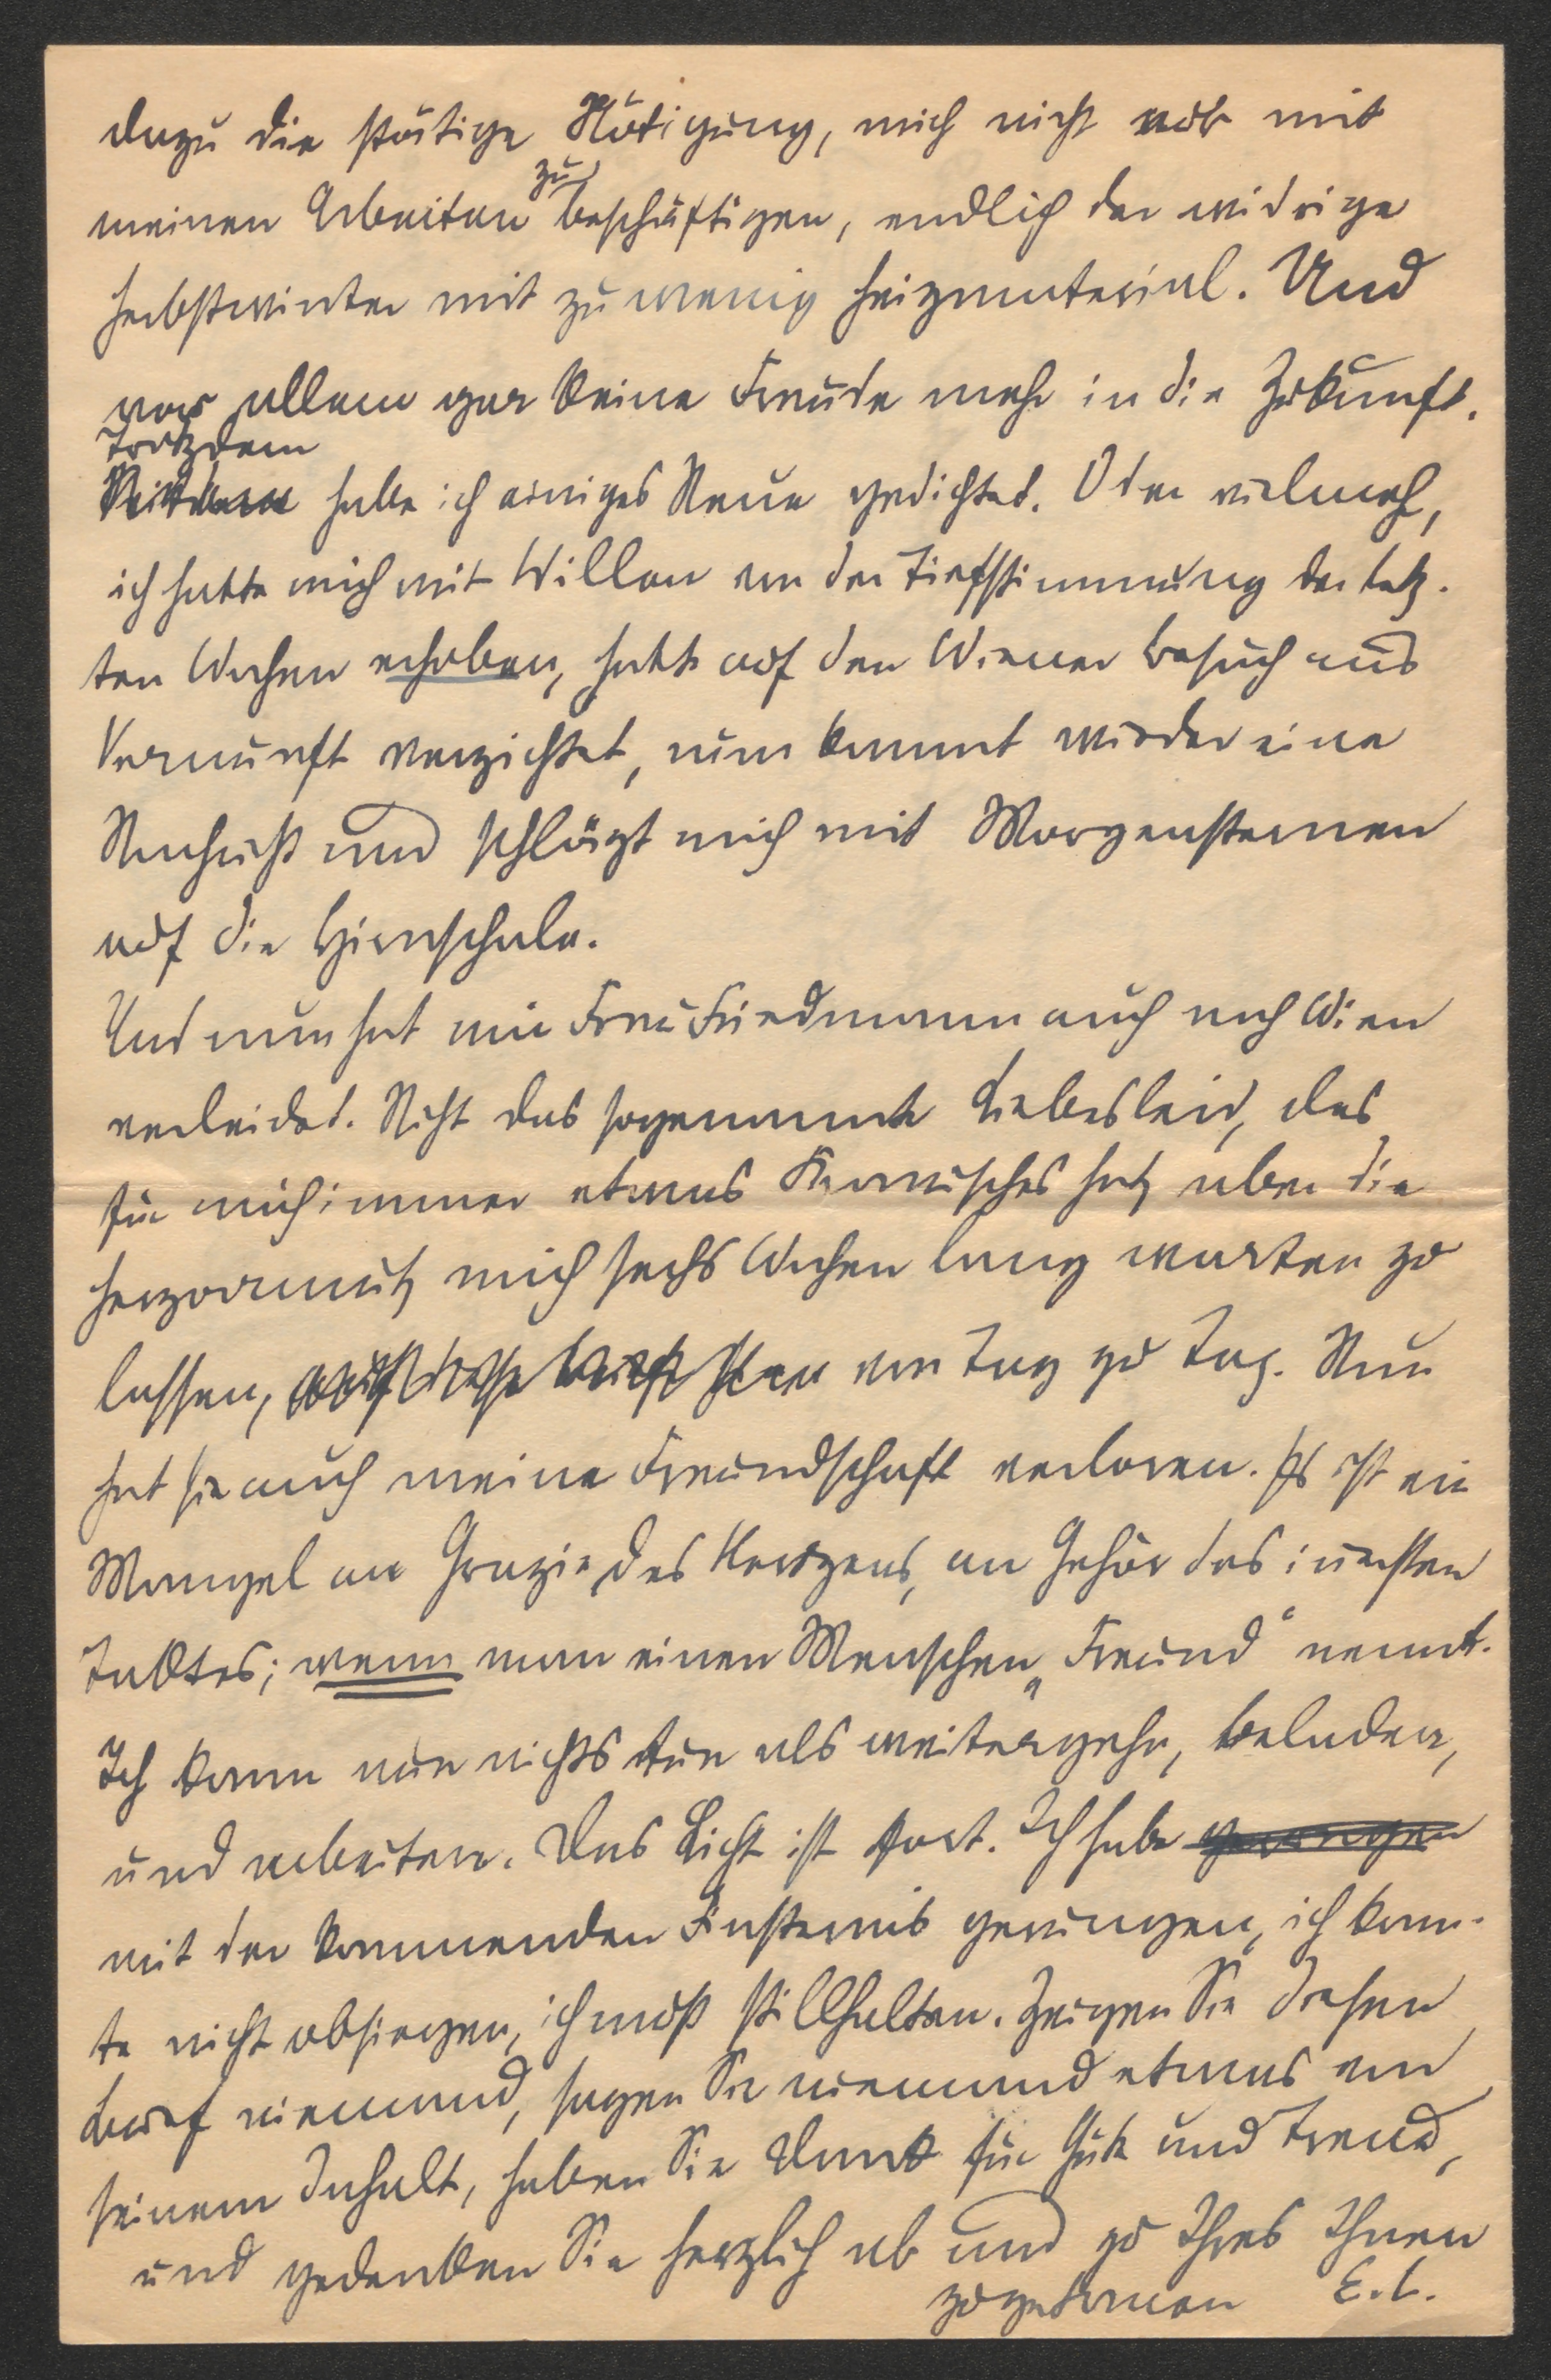 dazu die stätige Nötigung, mich nicht nur mit
meinen Arbeiten zu beschäftigen, endlich der widrige
Herbstwinter mit zu wenig Heizmaterial. Und
vor allem gar keine Freude mehr in die Zukunft.
Trotzdem
habe ich einiges Neue gedichtet. Oder vielmehr,
ich hatte mich mit Willen von der Tiefstimmung der letz-
ten Wochen erhoben, hatte auf den Wiener Besuch aus
Vernunft verzichtet, nun kommt wieder eine
Nachricht und schlägt mich mit Morgensternen
auf die Hirnschale.
Und nun hat mir Frau Friedmann auch noch Wien
verleidet. Nicht das sogenannte Liebesleid, das
für mich immer etwas Komisches hat, aber die
Herzarmut, mich sechs Wochen lang warten zu
lassen, von Tag zu Tag. Nun
hat sie auch meine Freundschaft verloren. Es ist ein
Mangel an Grazie des Herzens, an Gehör des innersten
Taktes; wenn man einen Menschen „Freund“ nennt.
Ich kann nun nichts tun als weitergehn, beladen,
und arbeiten. Das Licht ist fort. Ich habe gerungen
mit der kommenden Finsternis gerungen, ich konn-
te nicht obsiegen, ich muß stillhalten. Zeigen Sie diesen
Brief niemand, sagen Sie niemand etwas von
seinem Inhalt, haben Sie Dank für Güte und Treue,
und gedenken Sie herzlich ab und zu Ihres Ihnen
zugetanen E. L.